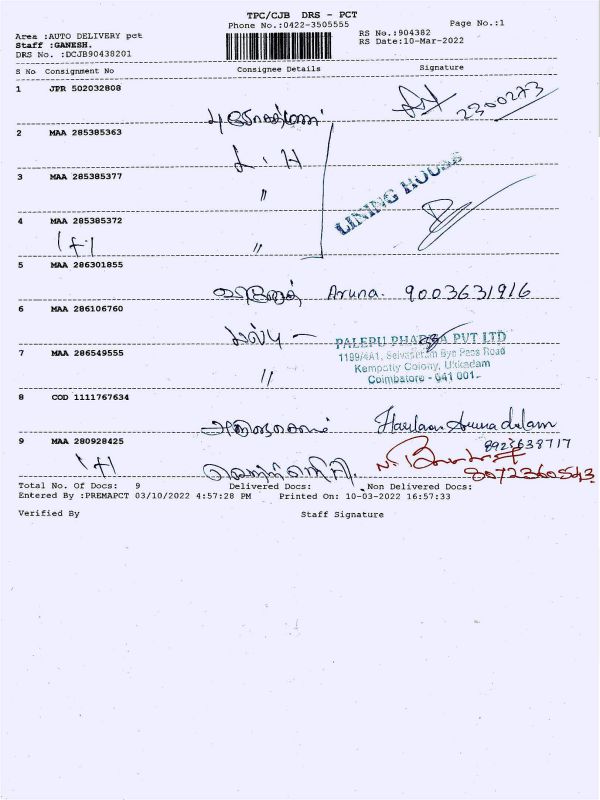 TPC/CJB DRS - PCT
Phone No.:0422-3505555
Page No.:1
Area :AUTO DELIVERY pct
Staff :GANESH.
DRS No. :DCJB90438201
RS No.:904382
RS Date:10-Mar-2022
S No Consignment No Consignee Details Signature
1 JPR 502032808
2300273
2 MAA 285385363
L. H
3 MAA 285385377
〃
LINING HOUSE
4 MAA 285385372
〃
5 MAA 286301855
Aruna. 9003631916
6 MAA 286106760
PALEPU PHARMA PVT LTD
7 MAA 286549555
1199/4A1, Selvaseram Bye Pass Road
Kempatty Colony, Ukkadam
〃
Coimbatore - 641 001.
8 COD 1111767634
Arunachalam
8923638717
9 MAA 280928425
8072360543
Total No. Of Docs: 9 Delivered Docs: Non Delivered Docs:
Entered By :PREMAPCT 03/10/2022 4:57:28 PM Printed On: 10-03-2022 16:57:33
Verified By Staff Signature